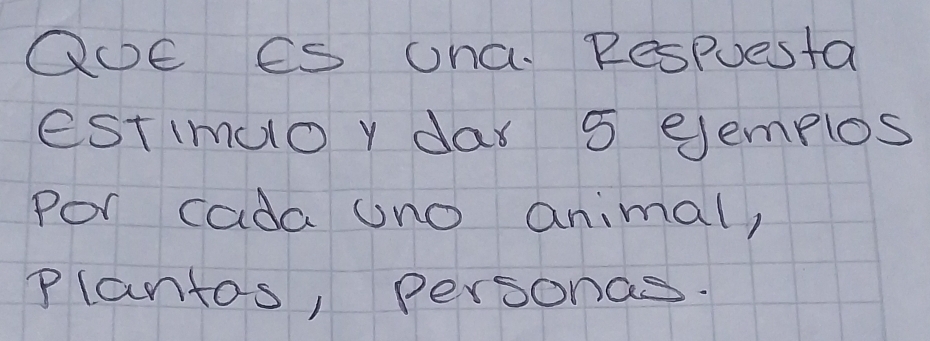 QUE ES una. Respuesta
estimulo y dar 5 ejemplos
Por cada uno animal,
Plantas, personas.